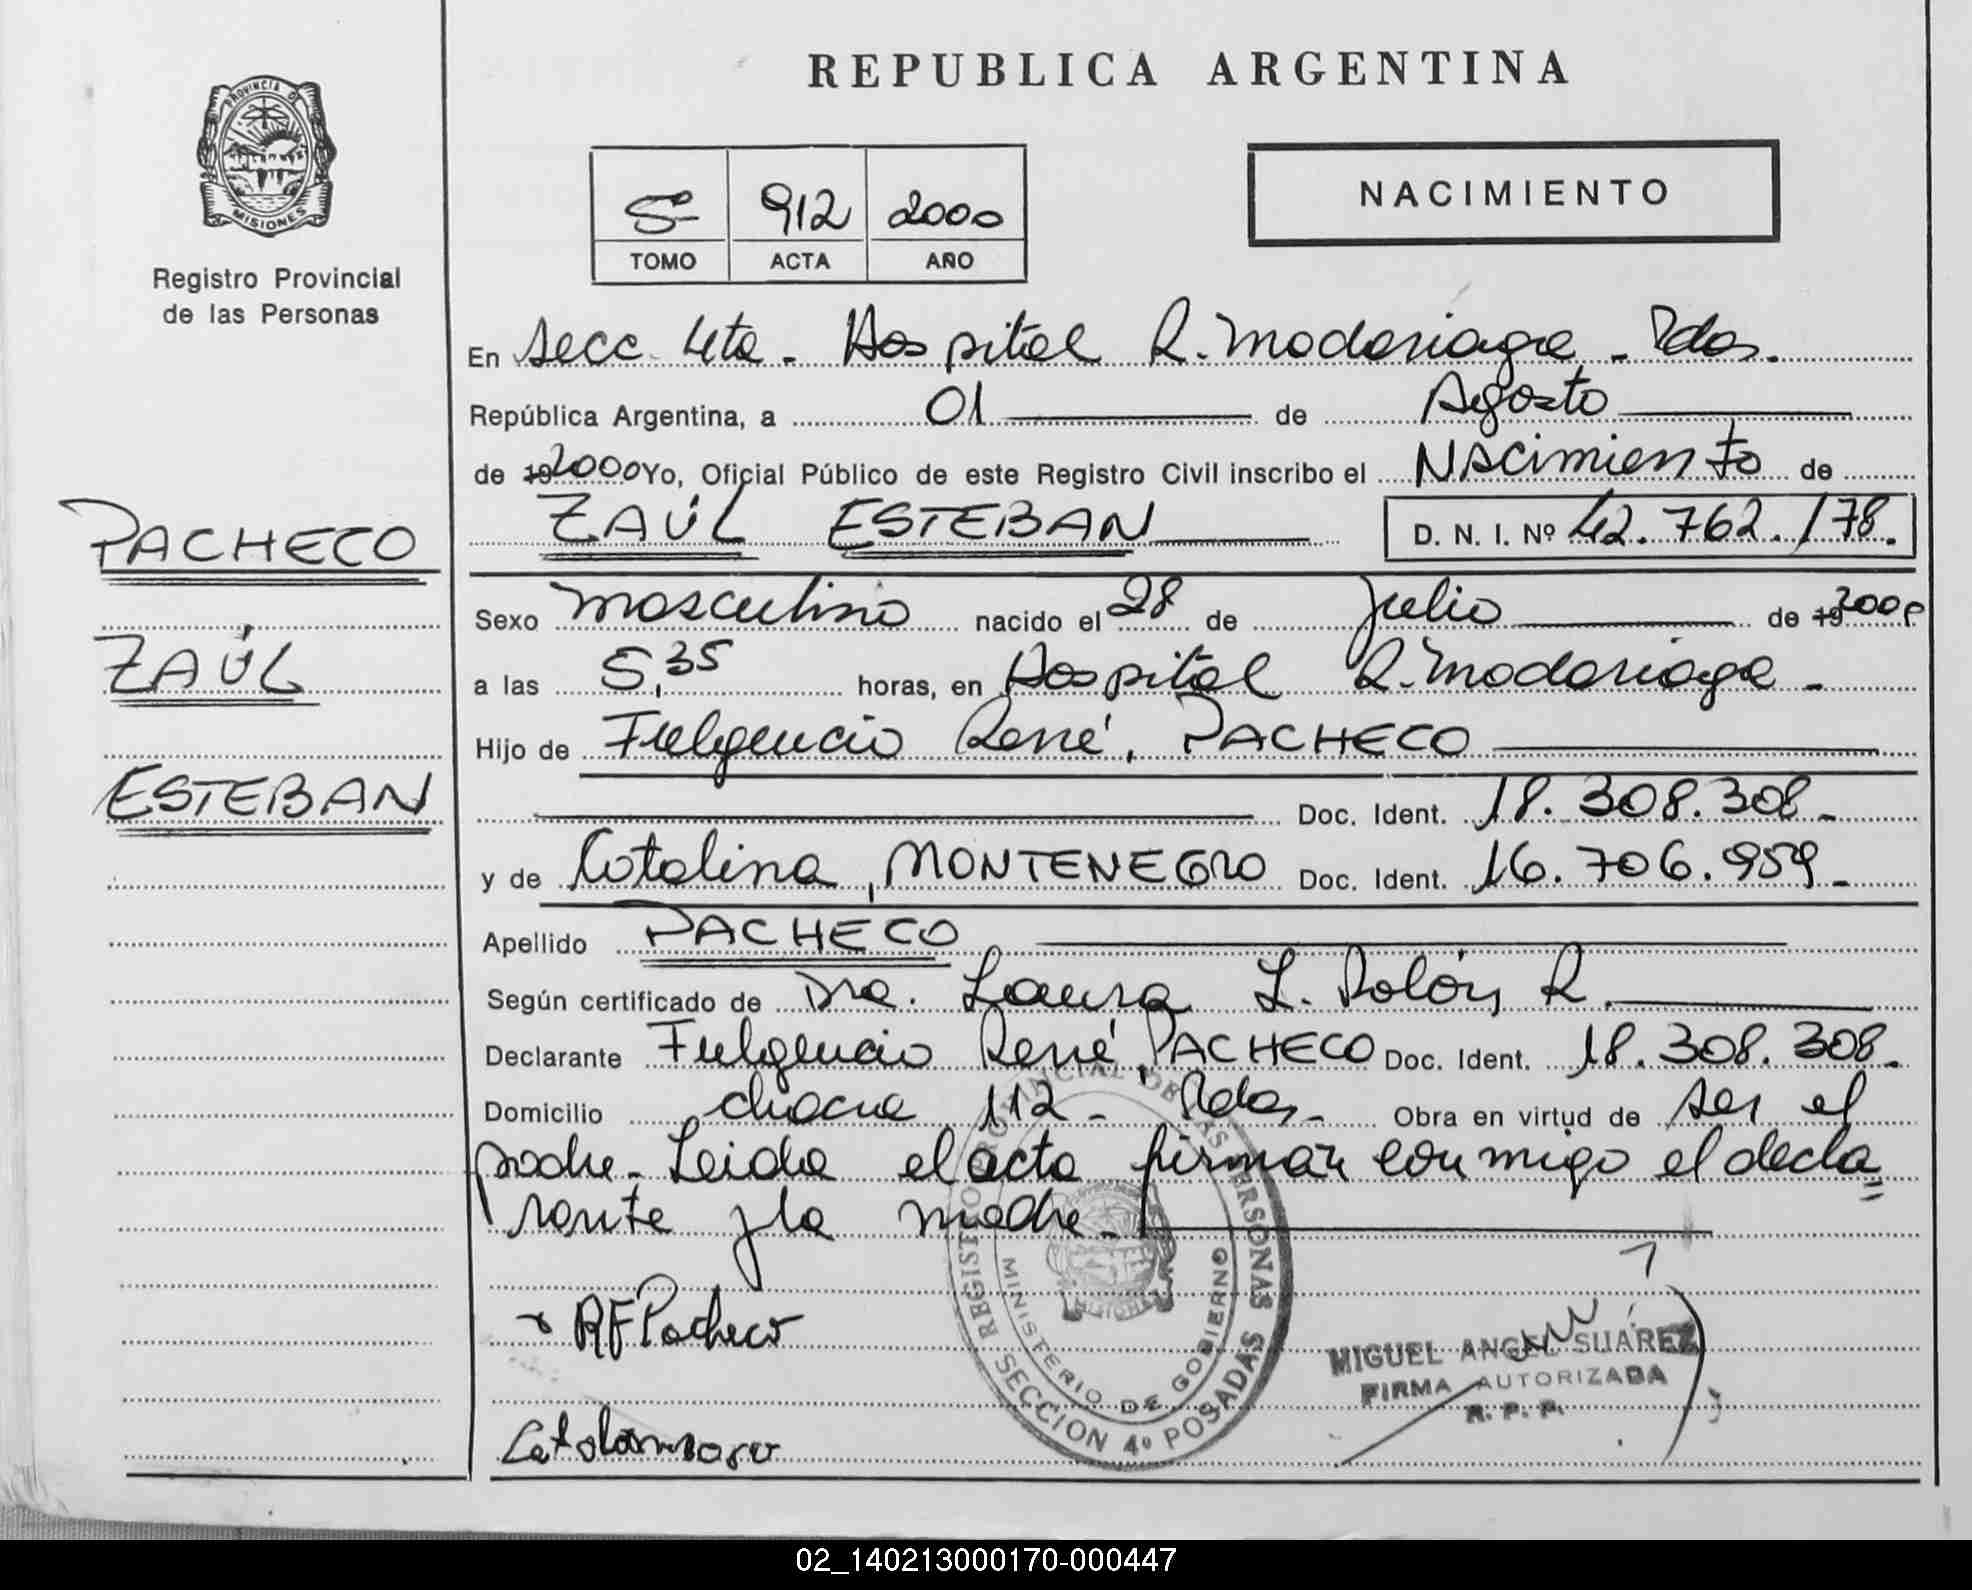 REPUBLICA ARGENTINA
PROVINCIA DE
MISIONES
Registro Provincial
de las Personas
5º 912 2000
TOMO ACTA AÑO
NACIMIENTO
En Secc 4ta. Hospital R. Madariaga - Pdas.
República Argentina, a 01 de Agosto
de 19 2000 Yo, Oficial Público de este Registro Civil inscribo el Nacimiento de
ZAÚL ESTEBAN D. N. I. Nº 42.762.178.
PACHECO
ZAÚL
ESTEBAN
Sexo Masculino nacido el 28 de Julio de 19 2000
a las 5,35 horas, en Hospital R. Madariaga -
Hijo de Fulgencio René, PACHECO
Doc. Ident. 18.308.308-
y de Catalina, MONTENEGRO Doc. Ident. 16.706.959-
Apellido PACHECO
Según certificado de Dra. Laura L. Rolón R.
Declarante Fulgencio René, PACHECO Doc. Ident. 18.308.308-
Domicilio chacra 112 - Pdas. - Obra en virtud de ser el
padre - Leida el acta firman conmigo el decla=
rante y la madre.
RF Pacheco
REGISTRO PROVINCIAL DE LAS PERSONAS
MINISTERIO DE GOBIERNO
SECCION 4º POSADAS
MIGUEL ANGEL SUAREZ
FIRMA AUTORIZADA
R. P. P.
02_140213000170-000447